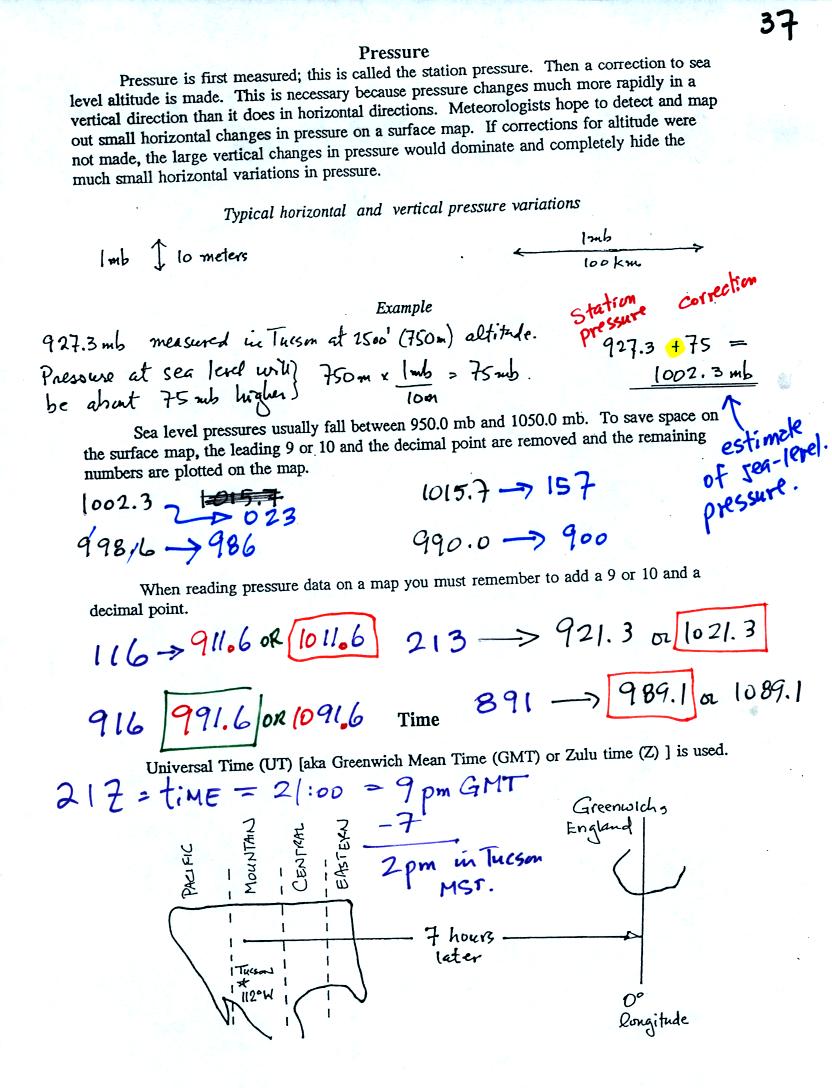 37
Pressure
Pressure is first measured; this is called the station pressure. Then a correction to sea
level altitude is made. This is necessary because pressure changes much more rapidly in a
vertical direction than it does in horizontal directions. Meteorologists hope to detect and map
out small horizontal changes in pressure on a surface map. If corrections for altitude were
not made, the large vertical changes in pressure would dominate and completely hide the
much small horizontal variations in pressure.
Typical horizontal and vertical pressure variations
1mb ↕ 10 meters
1mb
100 km
Example
Station pressure
correction
927.3 mb measured in Tucson at 2500' (750m) altitude.
Pressure at sea level will
be about 75 mb higher
750m × 1mb/10m = 75mb.
927.3 + 75 =
1002.3 mb
estimate
of sea-level.
pressure.
Sea level pressures usually fall between 950.0 mb and 1050.0 mb. To save space on
the surface map, the leading 9 or 10 and the decimal point are removed and the remaining
numbers are plotted on the map.
1002.3 → 023
1015.7
1015.7 → 157
998.6 → 986
990.0 → 900
When reading pressure data on a map you must remember to add a 9 or 10 and a
decimal point.
116 → 911.6 OR 1011.6
213 → 921.3 or 1021.3
916 991.6 OR 1091.6
891 → 989.1 or 1089.1
Time
Universal Time (UT) [aka Greenwich Mean Time (GMT) or Zulu time (Z) ] is used.
21Z = TIME = 21:00 = 9pm GMT
-7
2pm in Tucson
MST.
PACIFIC
MOUNTAIN
CENTRAL
EASTERN
Greenwich,
England
7 hours
later
Tucson
*
112°W
0°
longitude